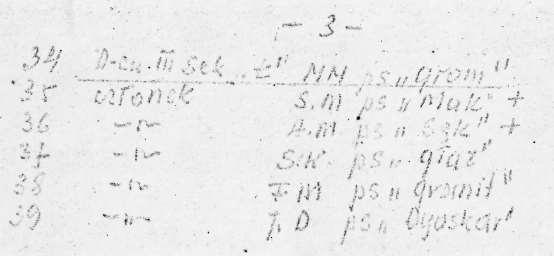 - 3 -
34 D-ca. III Sek „Ł" MM ps „Grom"
35 członek S.M ps „Mak" +
36 -"- A.M ps „Sęk" +
37 -"- S.K. ps „głaz"
38 -"- F M ps „granit"
39 -"- J. D ps „Dyoskar"